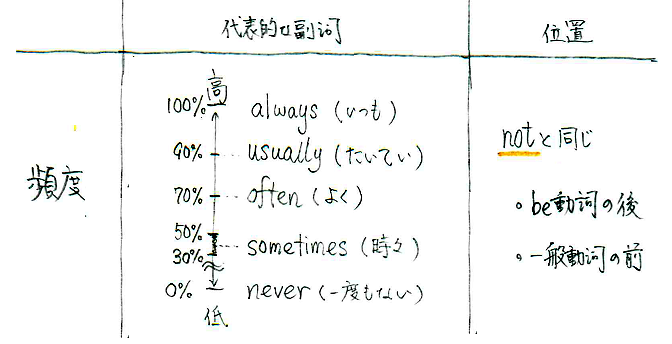 代表的な副詞
位置
高
100% always (いつも)
90% usually (たいてい)
notと同じ
頻度
70% often (よく)
・be動詞の後
50%
sometimes (時々)
・一般動詞の前
30%
0% never (一度もない)
低